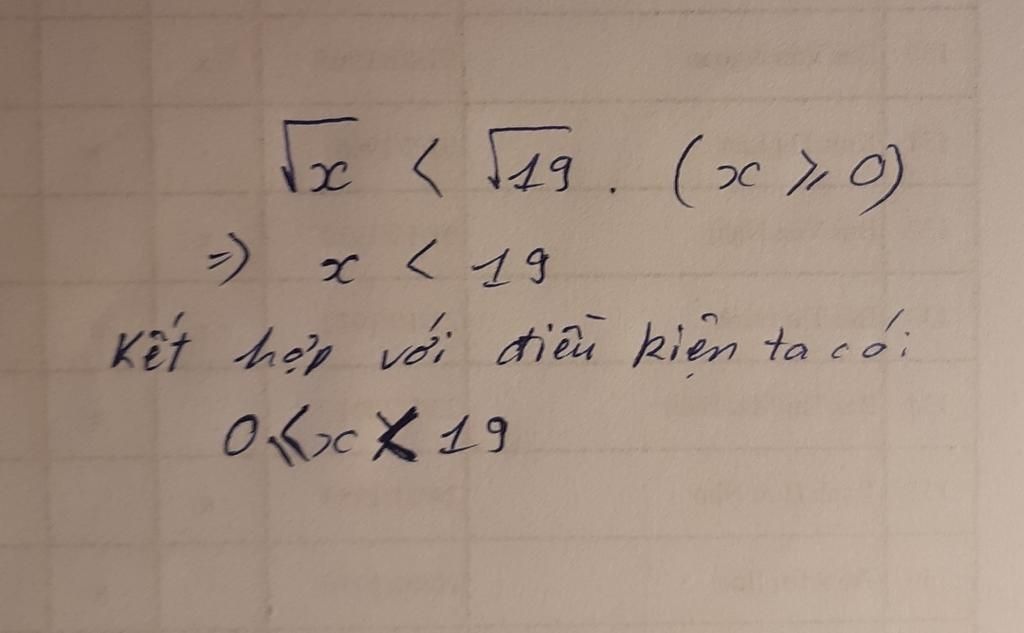 √x < √19. (x ⩾ 0)
=> x < 19
Kết hợp với điều kiện ta có:
0 ⩽ x < 19